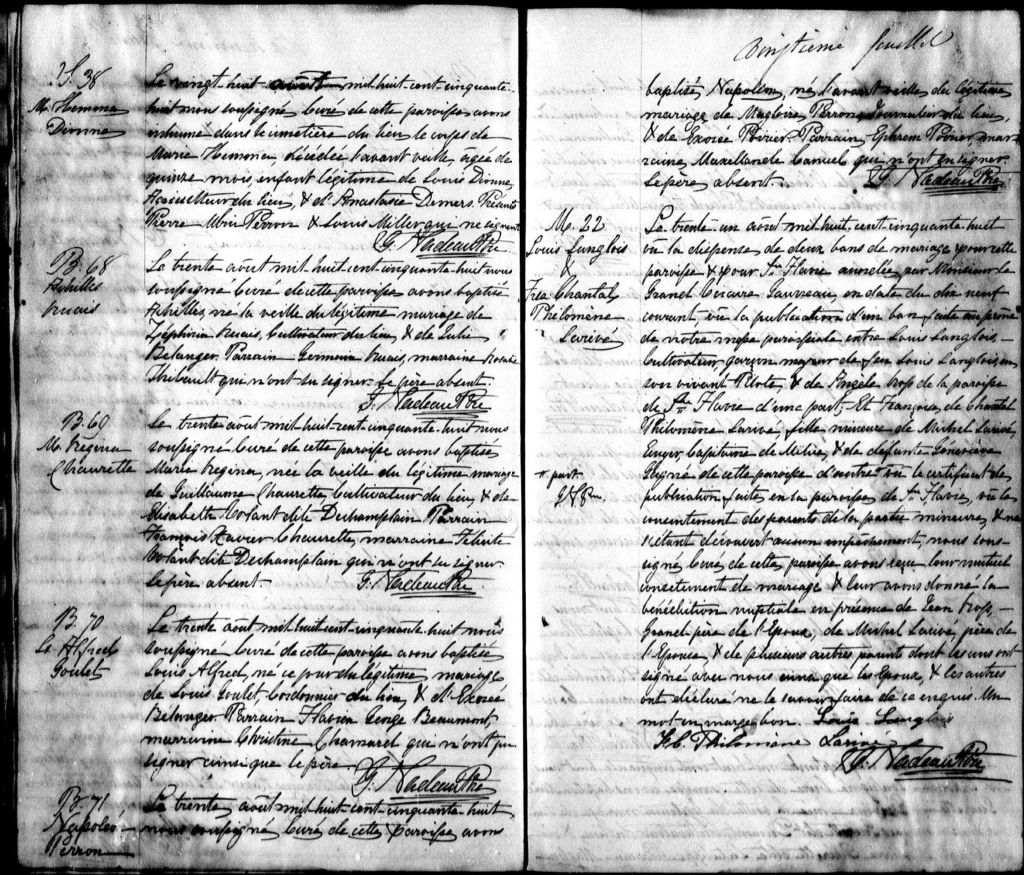 S. 38
M. Hemma
Dionne
Le vingt-huit août mil huit-cent-cinquante-
huit nous soussigné Curé de cette paroisse avons
inhumé dans le cimetière du lieu le corps de
Marie Hemma, décédée l'avant veille, âgée de
quinze mois, enfant légitime de Louis Dionne
du lieu, & d'Anastasie Demers. Présents
Pierre Perron & Louis Miller qui ne signent
G. Nadeau Ptre
B. 68
Achilles
Ruais
Le trente août mil huit-cent-cinquante-huit nous
soussigné Curé de cette paroisse avons baptisé
Achilles, né la veille du légitime mariage de
Zéphirin Ruais, Cultivateur du lieu, & de Julie
Bélanger. Parrain Germain Ruais, marraine Rosalie
Thibault qui n'ont su signer. Le père absent.
G. Nadeau Ptre
B. 69
M. Régina
Chaurette
Le trente août mil-huit-cent-cinquante-huit nous
soussigné Curé de cette paroisse avons baptisé
Marie Regina, née la veille du légitime mariage
de Guillaume Chaurette Cultivateur du lieu, & de
Elisabeth Colant dite Duchamplain Parrain
François Xavier Chaurette, marraine Félicité
Colant dit Duchamplain qui n'ont su signer
Le père absent.
G. Nadeau Ptre
B. 70
Ls Alfred
Goulet
Le trente août mil-huit-cent-cinquante-huit nous
soussigné Curé de cette paroisse avons baptisé
Louis Alfred, né ce jour du légitime mariage
de Louis Goulet, Cordonnier du lieu, & d'Exorée
Bélanger Parrain Flavien George Beaumont,
marraine Christine Chamarel qui n'ont pu
signer ainsi que le père.
G. Nadeau Ptre
B. 71
Napoléon
Perron
Le trente août mil-huit-cent-cinquante-huit
nous soussigné Curé de cette paroisse avons
Vingtième feuillet
baptisé Napoléon, né l'avant veille du légitime
mariage de Magloire Perron Journalier du lieu,
& de Exorée Poirier. Parrain Ephrem Poirier, mar-
raine Maxellande Canuel qui n'ont su signer
Le père absent.
G. Nadeau Ptre
M. 22
Louis Langlois
&
Frse Chantal
Philomène
Larivé
Le trente-un août mil-huit-cent-cinquante-huit
vu la dispense de deux bans de mariage pour cette
paroisse & pour Ste Flavie accordée par Monsieur le
Grand Vicaire Gauvreau, en date du dix neuf
courant, vu la publication d'un ban faite au prône
de notre messe paroissiale entre Louis Langlois,
Cultivateur garçon majeur de feu Louis Langlois, en
son vivant Pilote, & de Angèle Ross de la paroisse
de Ste Flavie d'une part; Et Françoise de Chantal
Philomène Larivé, fille mineure de Michel Larivé,
Ecuyer, Capitaine de Milice, & de défunte Géneviève
de cette paroisse d'autre vu le certificat de
publication faite en la paroisse de Ste Flavie, vu le
consentement des parents de la partie mineure, & ne
s'étant découvert aucun empêchement, nous sous-
signé, Curé de cette paroisse avons reçu leur mutuel
consentement de mariage & leur avons donné la
bénédiction nuptiale en présence de Jean Ross
Grand père de l'Epoux, de Michel Larivé père de
l'Epouse, & de plusieurs autres parents dont les uns ont
signé avec nous ainsi que les Epoux, & les autres
ont déclaré ne le savoir faire de ce enquis. Un
mot en marge bon. Louis Langlois
F. C. Philomène Larivé
G. Nadeau Ptre
part.
G. N. Ptre